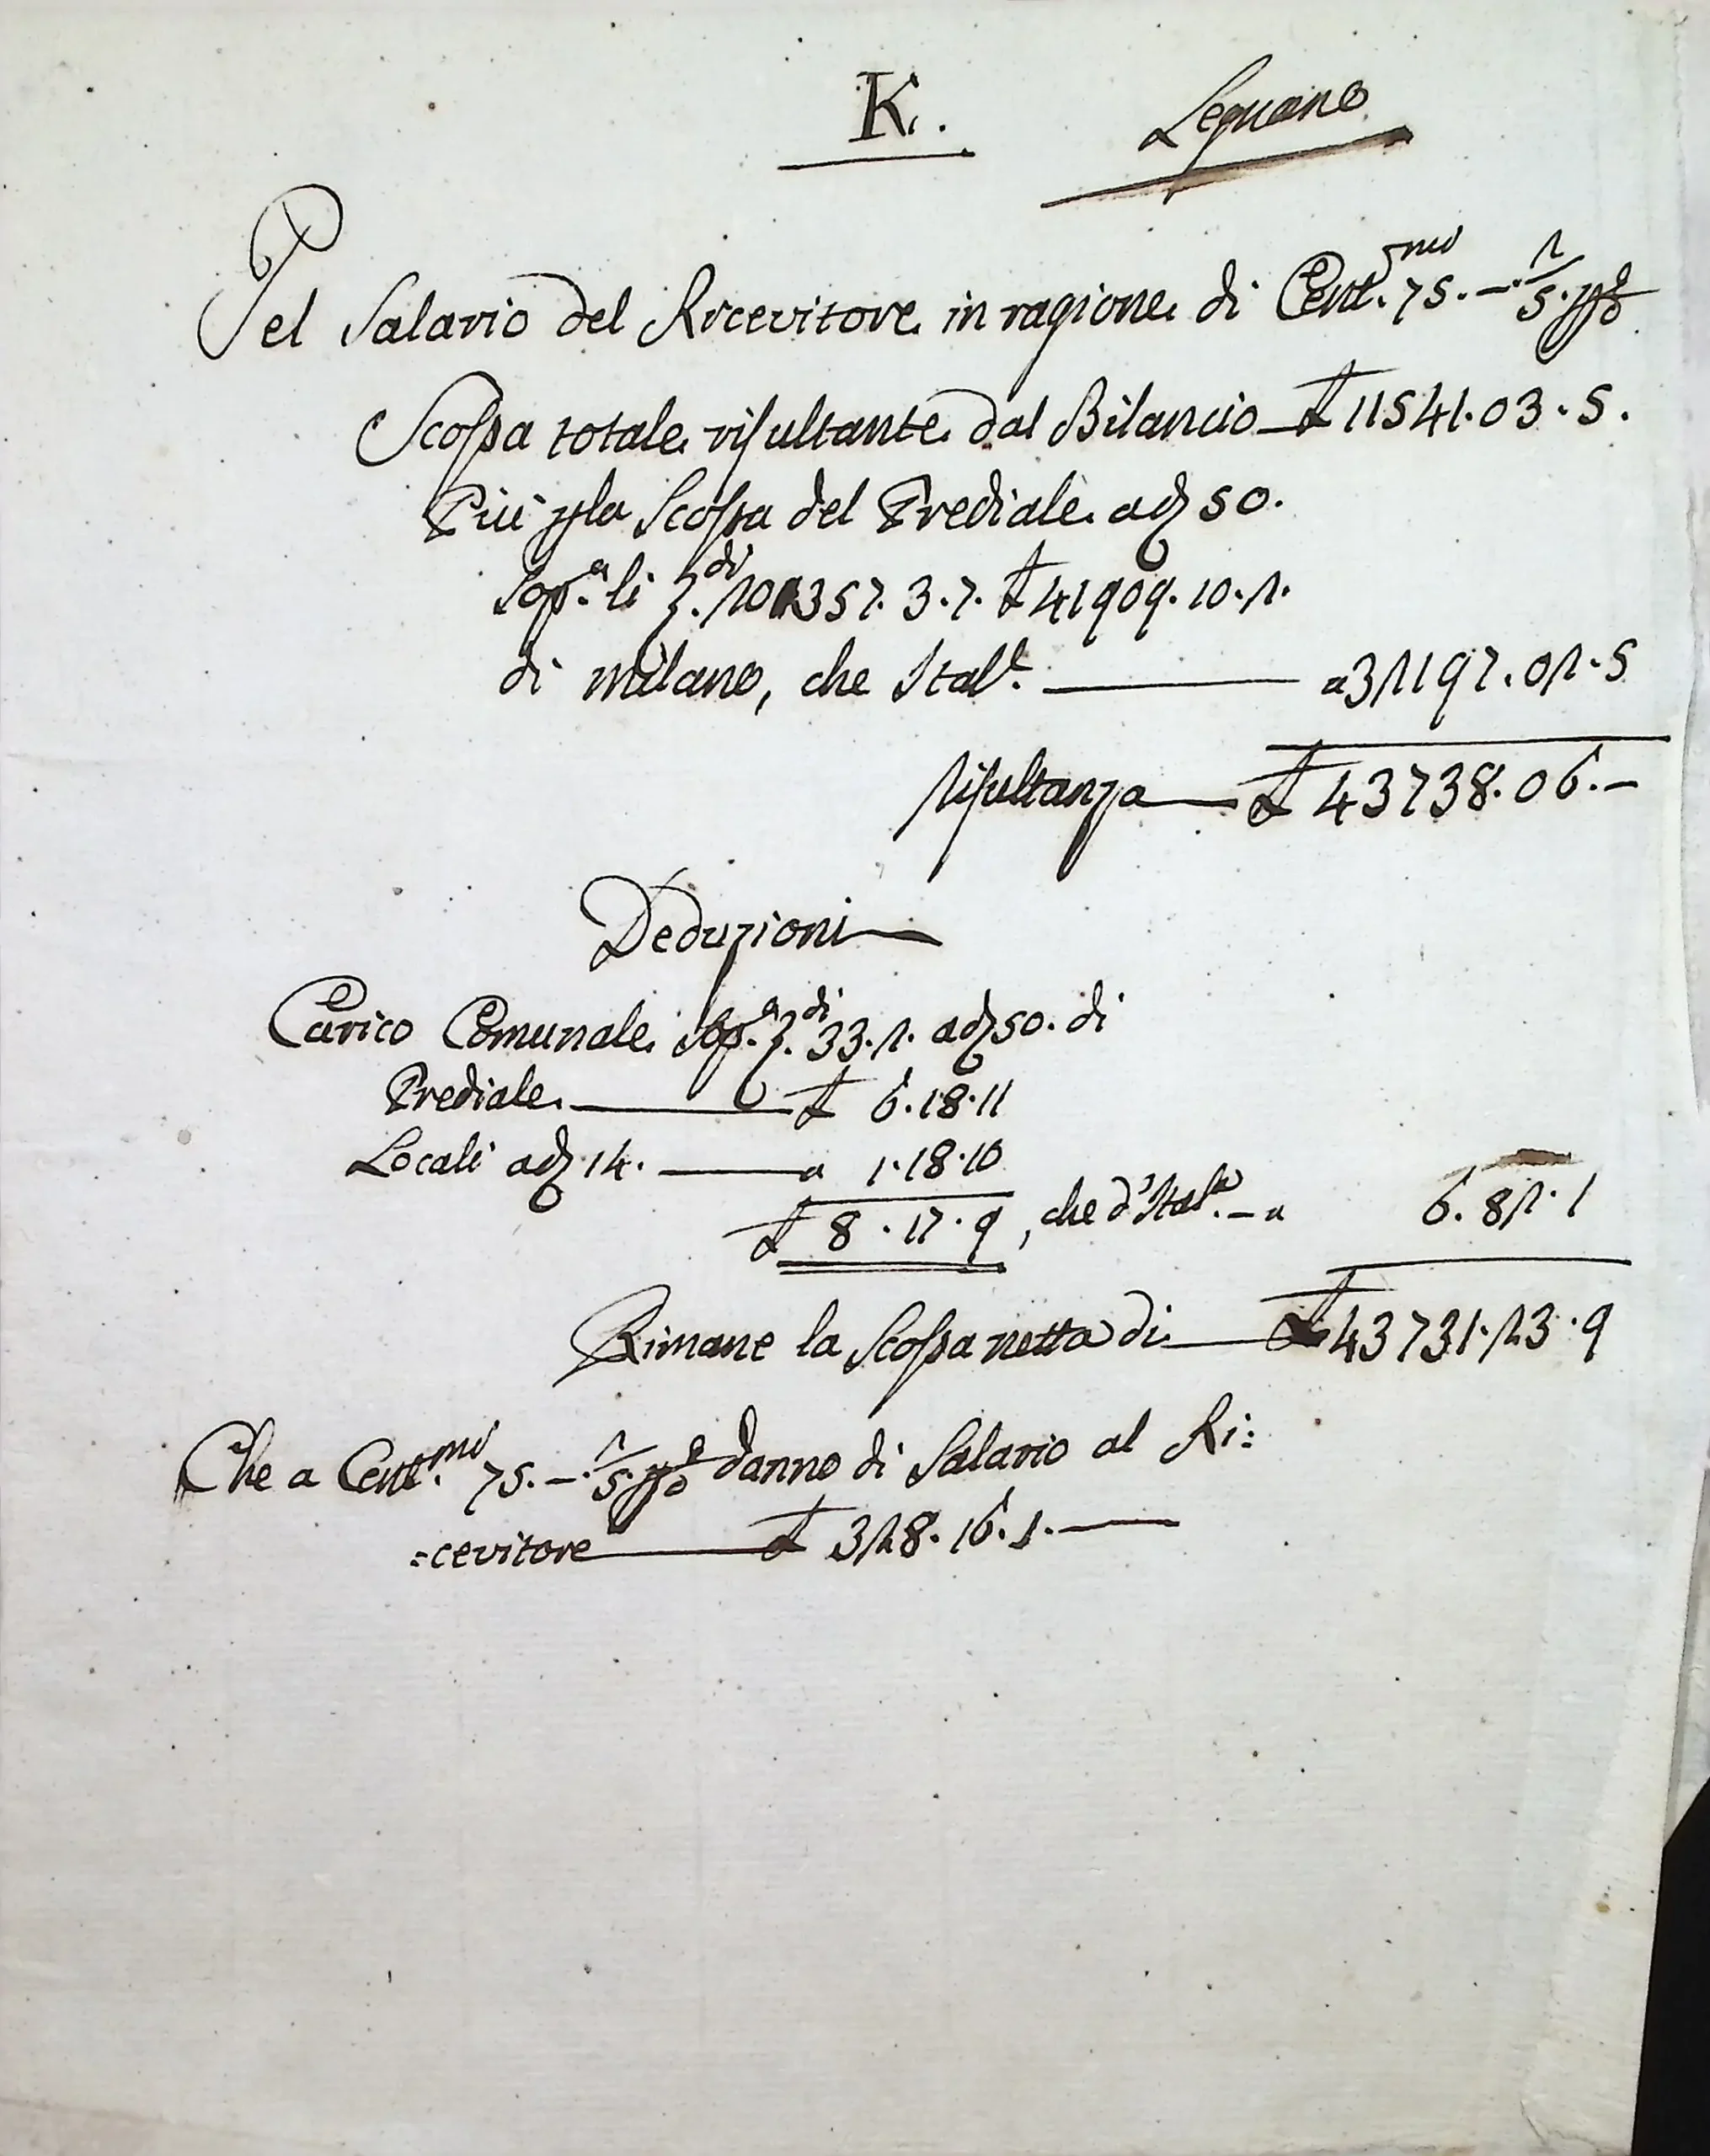 K. Legnano
Pel Salario del Ricevitore in ragione di Cent.mi 75.-.2/5. p%
Scossa totale risultante dal Bilancio £ 11541.03.5.
Più pla Scossa del Prediale a d. 50.
Sop.a li z.di 201357.3.7. £ 41909.10.2.
di Milano, che Ital.e — a 32197.02.5
Risultanza — £ 43738.06.-
Deduzioni
Carico Comunale Sop.a z.di 33.2. a d. 50. di
Prediale — £ 6.18.11
Locali a d. 14. — a 1.18.10
£ 8.17.9, che d'Ital.e - a 6.82.1
Rimane la Scossa netta di — £ 43731.23.9
Che a Cent.mi 75.-.2/5. p% danno di Salario al Ri:
:cevitore — £ 328.16.1.—